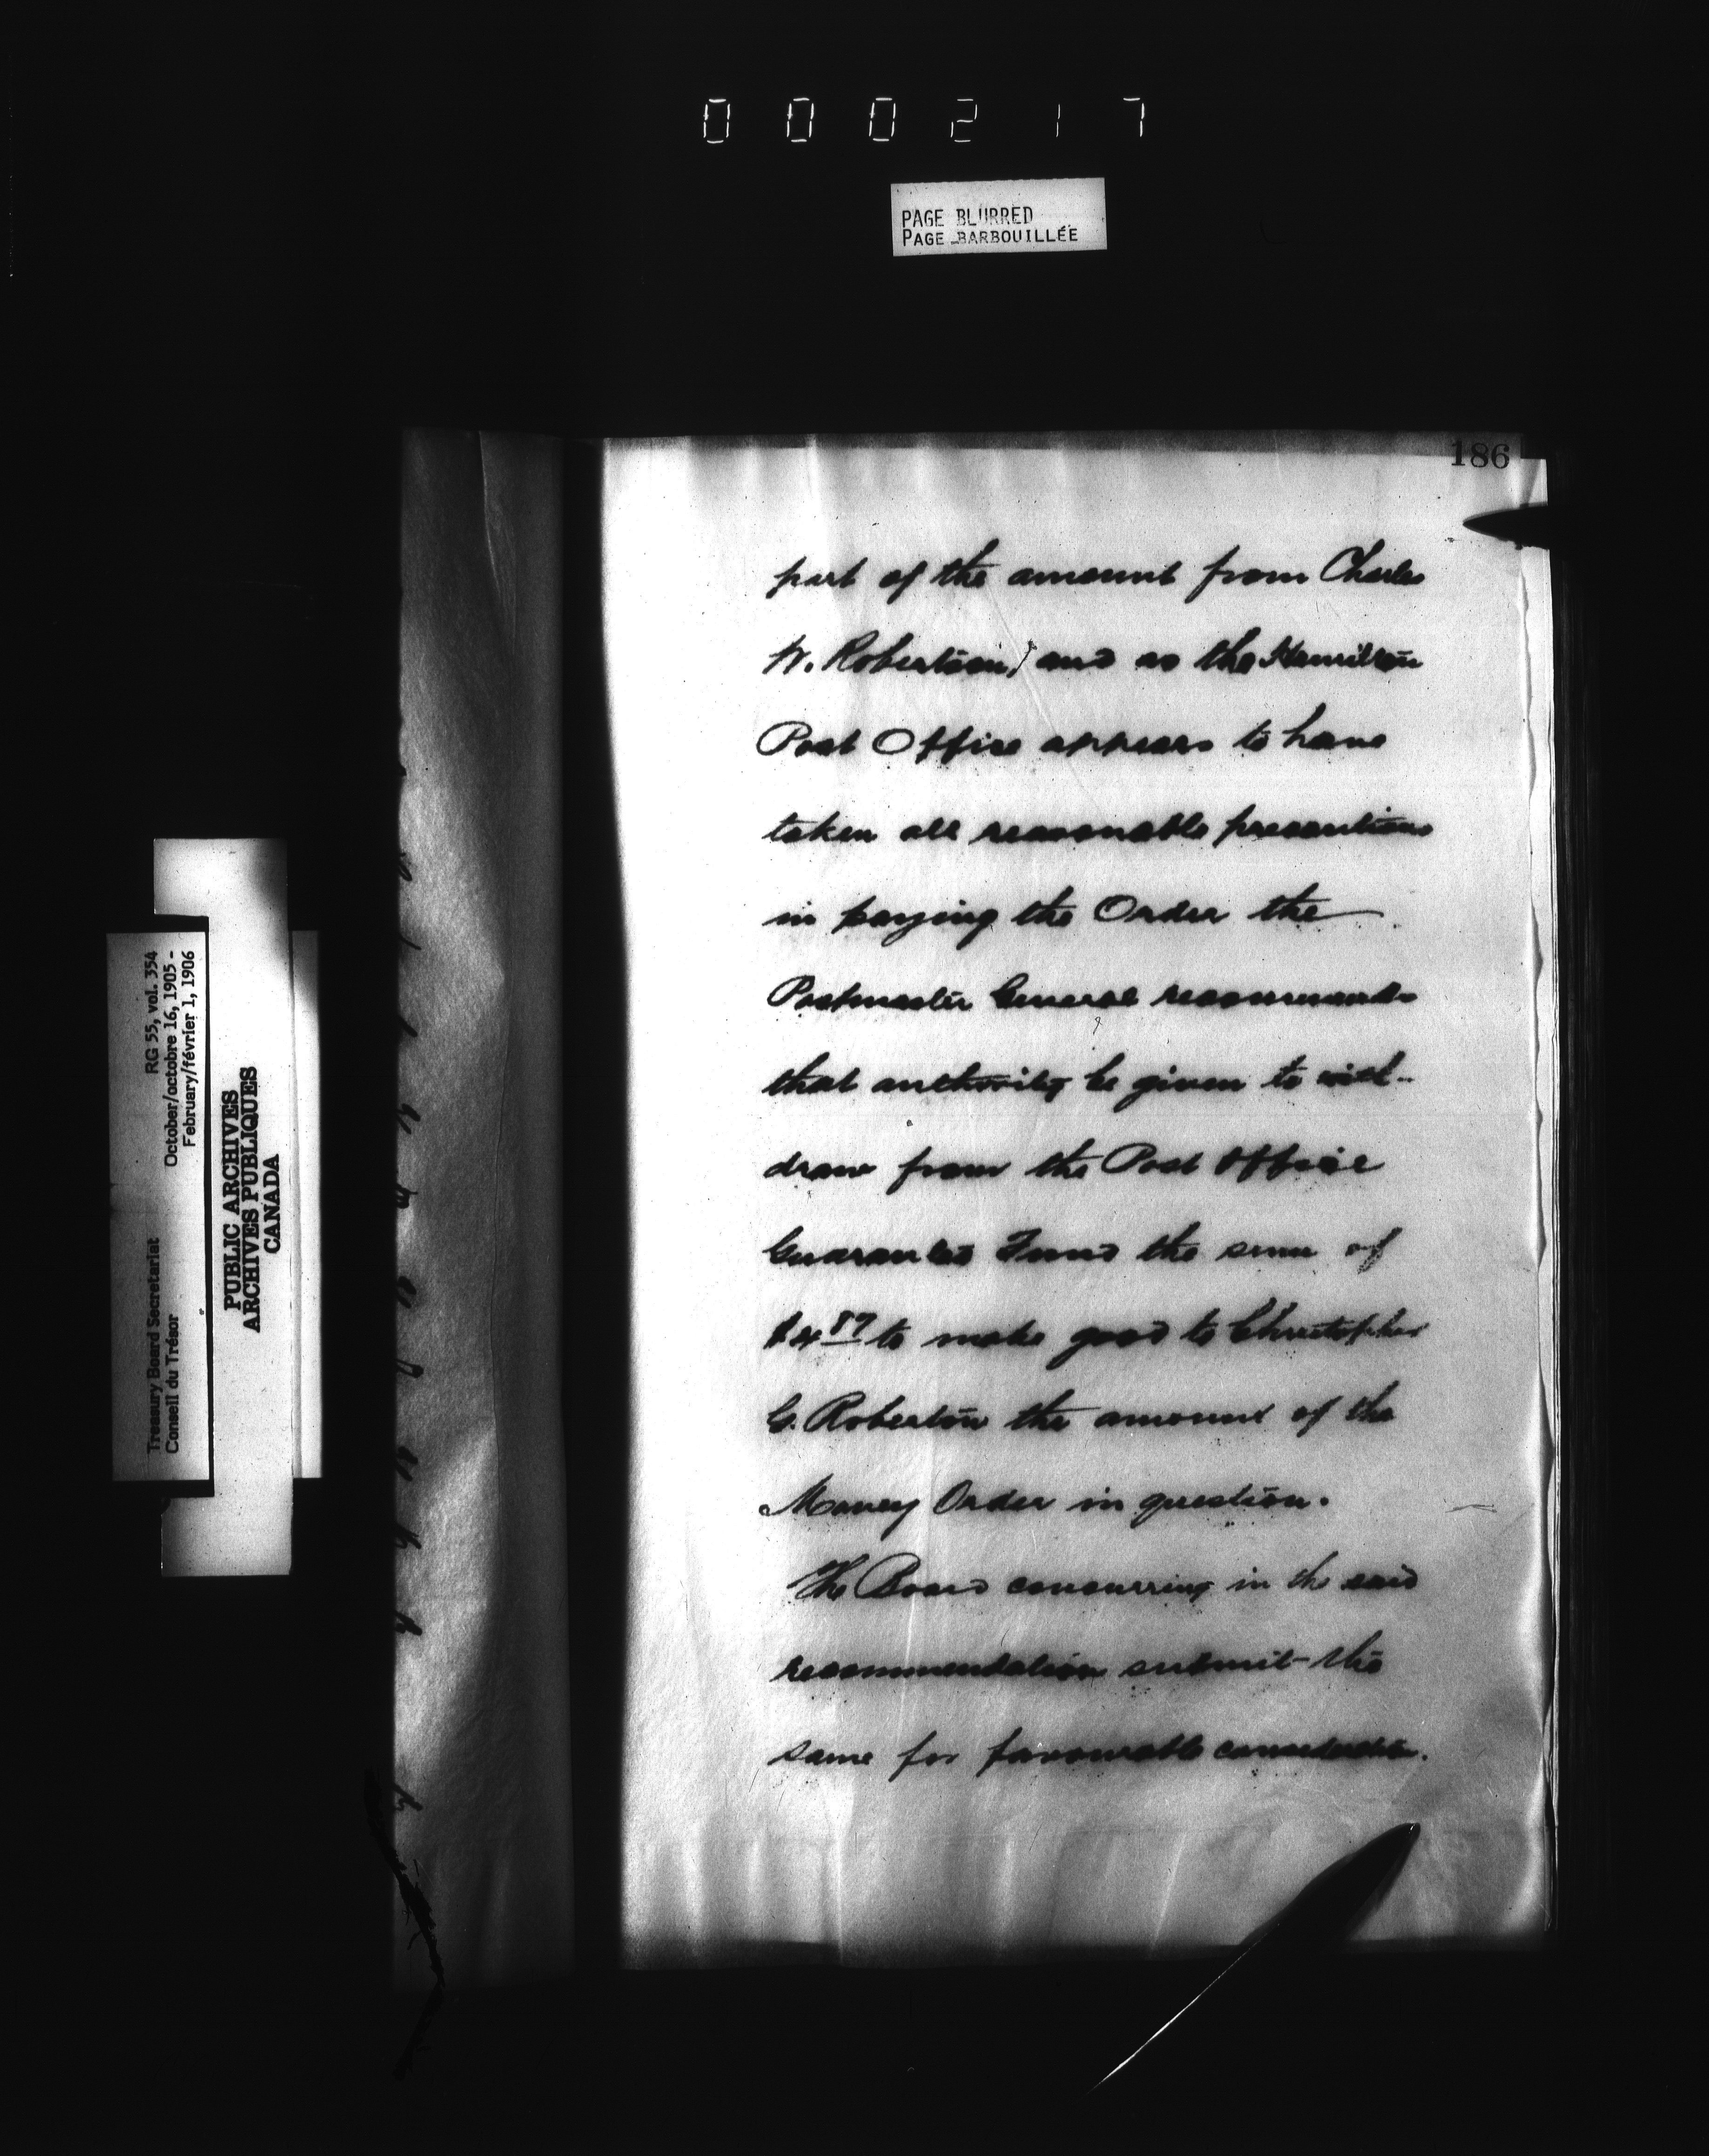 000217
PAGE BLURRED
PAGE BARBOUILLÉE
186
part of the amount from Charles
W. Robertson) and as the Hamilton
Post Office appears to have
taken all reasonable precautions
in paying the Order the
Postmaster General recommends
that authority be given to with-
draw from the Post Office
Guarantee Fund the sum of
$4 87 to make good to Christopher
G. Robertson the amount of the
Money Order in question.
The Board concurring in the said
recommendation submit the
same for favourable consideration.
Treasury Board Secretariat RG 55, vol. 354
Conseil du Trésor October/octobre 16, 1905 -
February/février 1, 1906
PUBLIC ARCHIVES
ARCHIVES PUBLIQUES
CANADA